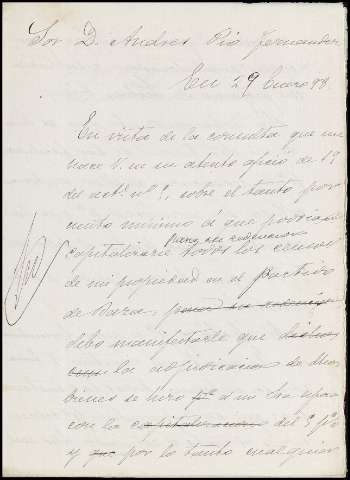 Sor D. Andres Pio Fernandez
En 29 Enero 98.
En vista de la consulta que me
hace V. en su atento oficio de 19
del act.l nº 1, sobre el tanto por
ciento minimo á que podrian
para su redencion
capitalizarse todos los censos
de mi propiedad en el partido
de Baza, para su redencion
debo manifestarle que dichos
la adjudicacion de dhos
bienes se hizo á mi Sra esposa
con la capitalizacion del 3 p%
y que por lo tanto cualquier